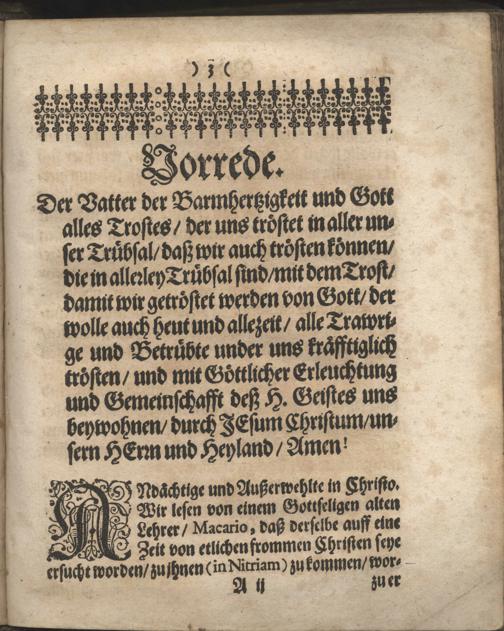 ) 3 (
Vorrede.
Der Vatter der Barmhertzigkeit und Gott
alles Trostes / der uns tröstet in aller un-
ser Trübsal / daß wir auch trösten können /
die in allerley Trübsal sind / mit dem Trost /
damit wir getröstet werden von Gott / der
wolle auch heut und allezeit / alle Trawri-
ge und Betrübte under uns kräfftiglich
trösten / und mit Göttlicher Erleuchtung
und Gemeinschafft deß H. Geistes uns
beywohnen / durch JEsum Christum / un-
sern HErrn und Heyland / Amen!
ANdächtige und Außerwehlte in Christo.
Wir lesen von einem Gottseligen alten
Lehrer / Macario, daß derselbe auff eine
Zeit von etlichen frommen Christen seye
ersucht worden / zu jhnen (in Nitriam) zu kommen / wor-
A ij zu er